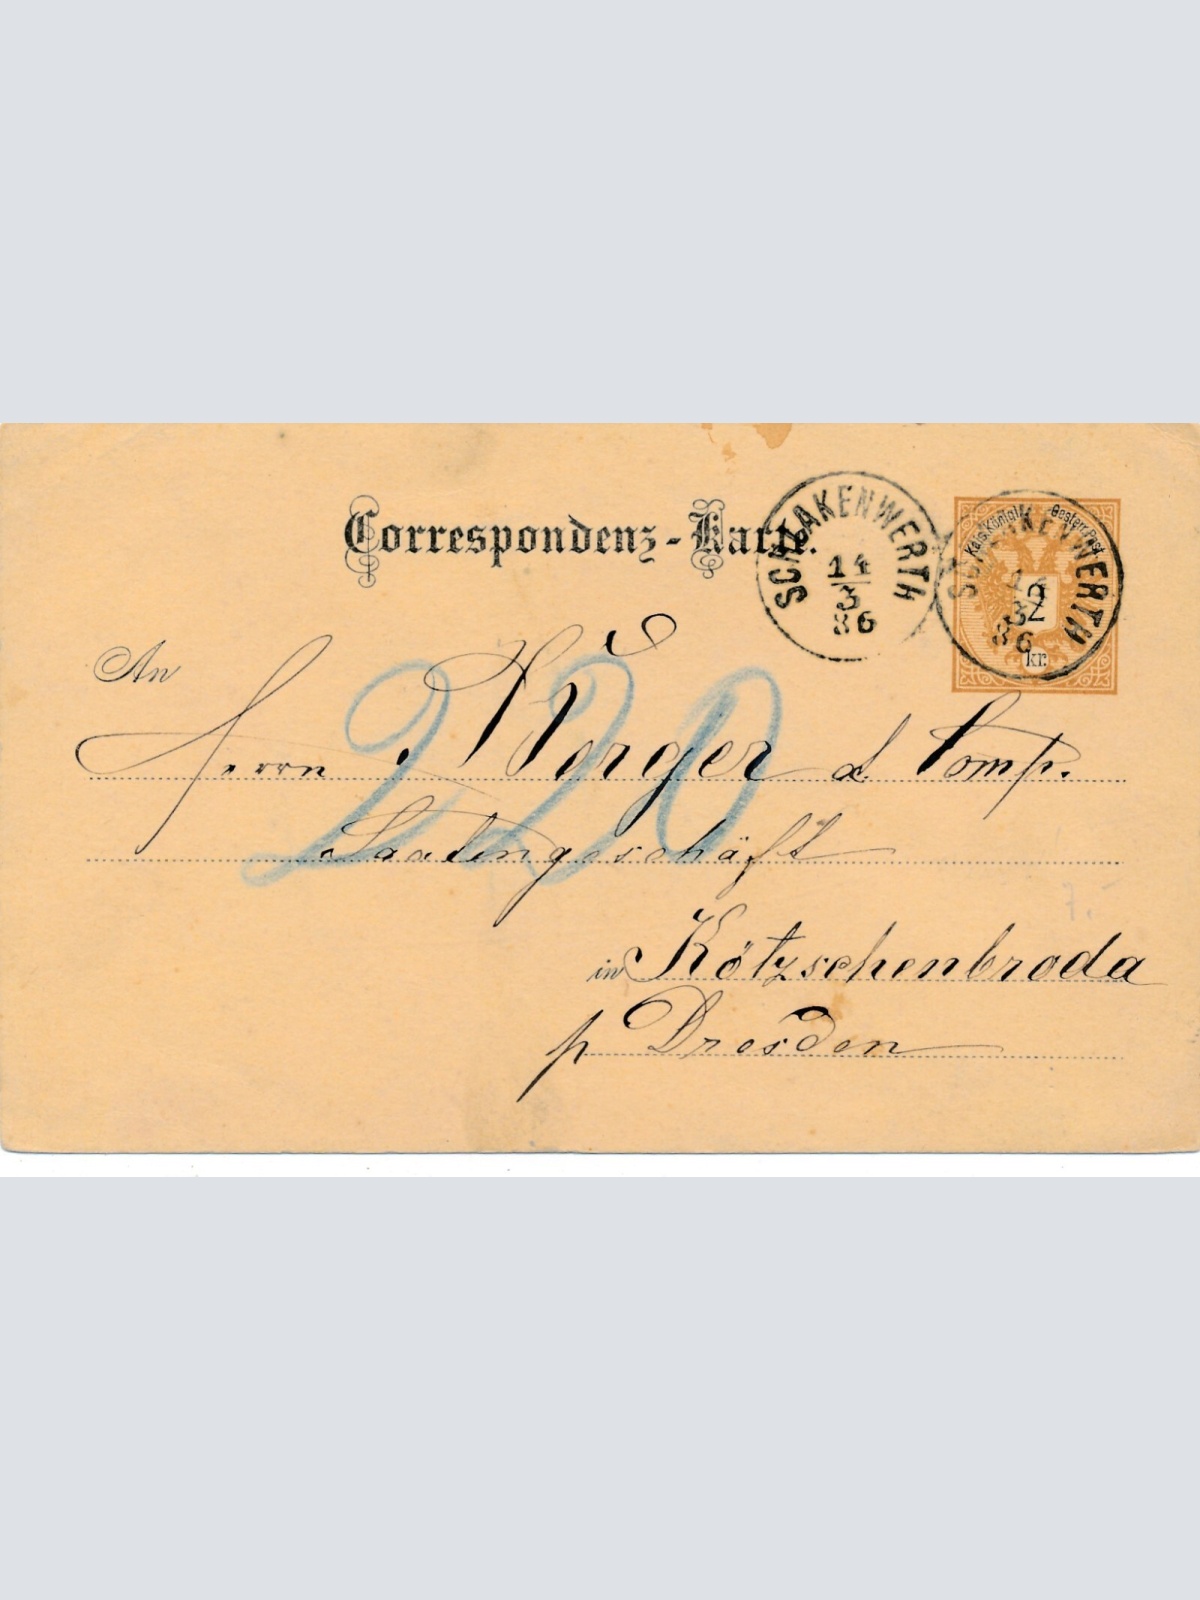 Correspondenz-Karte.
SCHLAKENWERTH
14
3
86
Kais. Königl. Oesterr. Post
2
kr.
SCHLAKENWERTH
14
3
86
An
Herrn Verger & Comp.
220
Saatengeschäft
7.-
in Kötzschenbroda
p Dresden